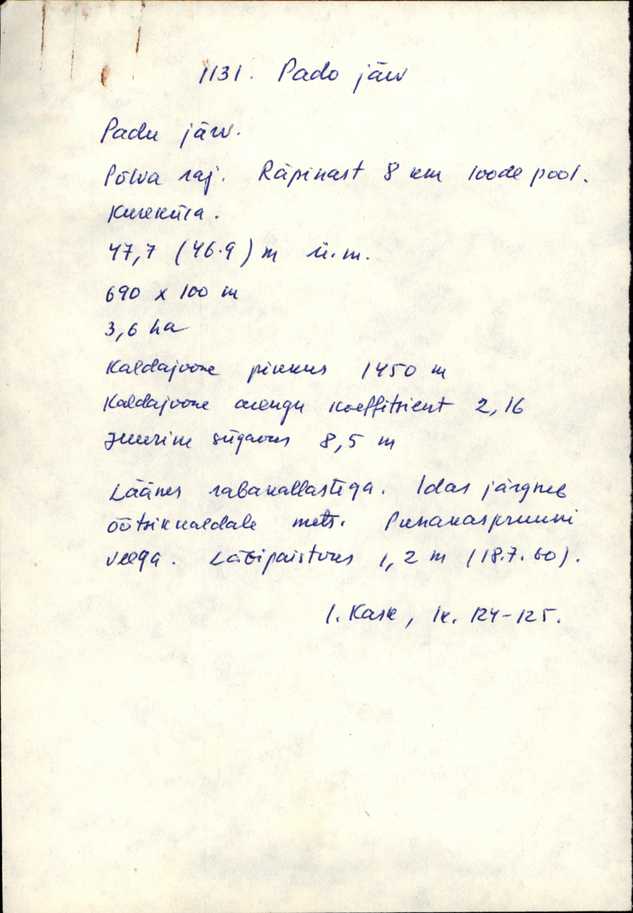 1131. Pado järv
Padu järv.
Põlva raj. Räpinast 8 km loode pool.
Kureküla.
47,7 (46.9) m ü.m.
690 x 100 m
3,6 ha
Kaldajoone pikkus 1450 m
Kaldajoone arengu koeffitsient 2,16
Suurim sügavus 8,5 m
Läänes rabakallastega. Idas järgneb
õõtsikkaldale mets. Punakaspruuni
veega. Läbipaistvus 1,2 m (18.7.60).
I. Kask, lk. 124-125.